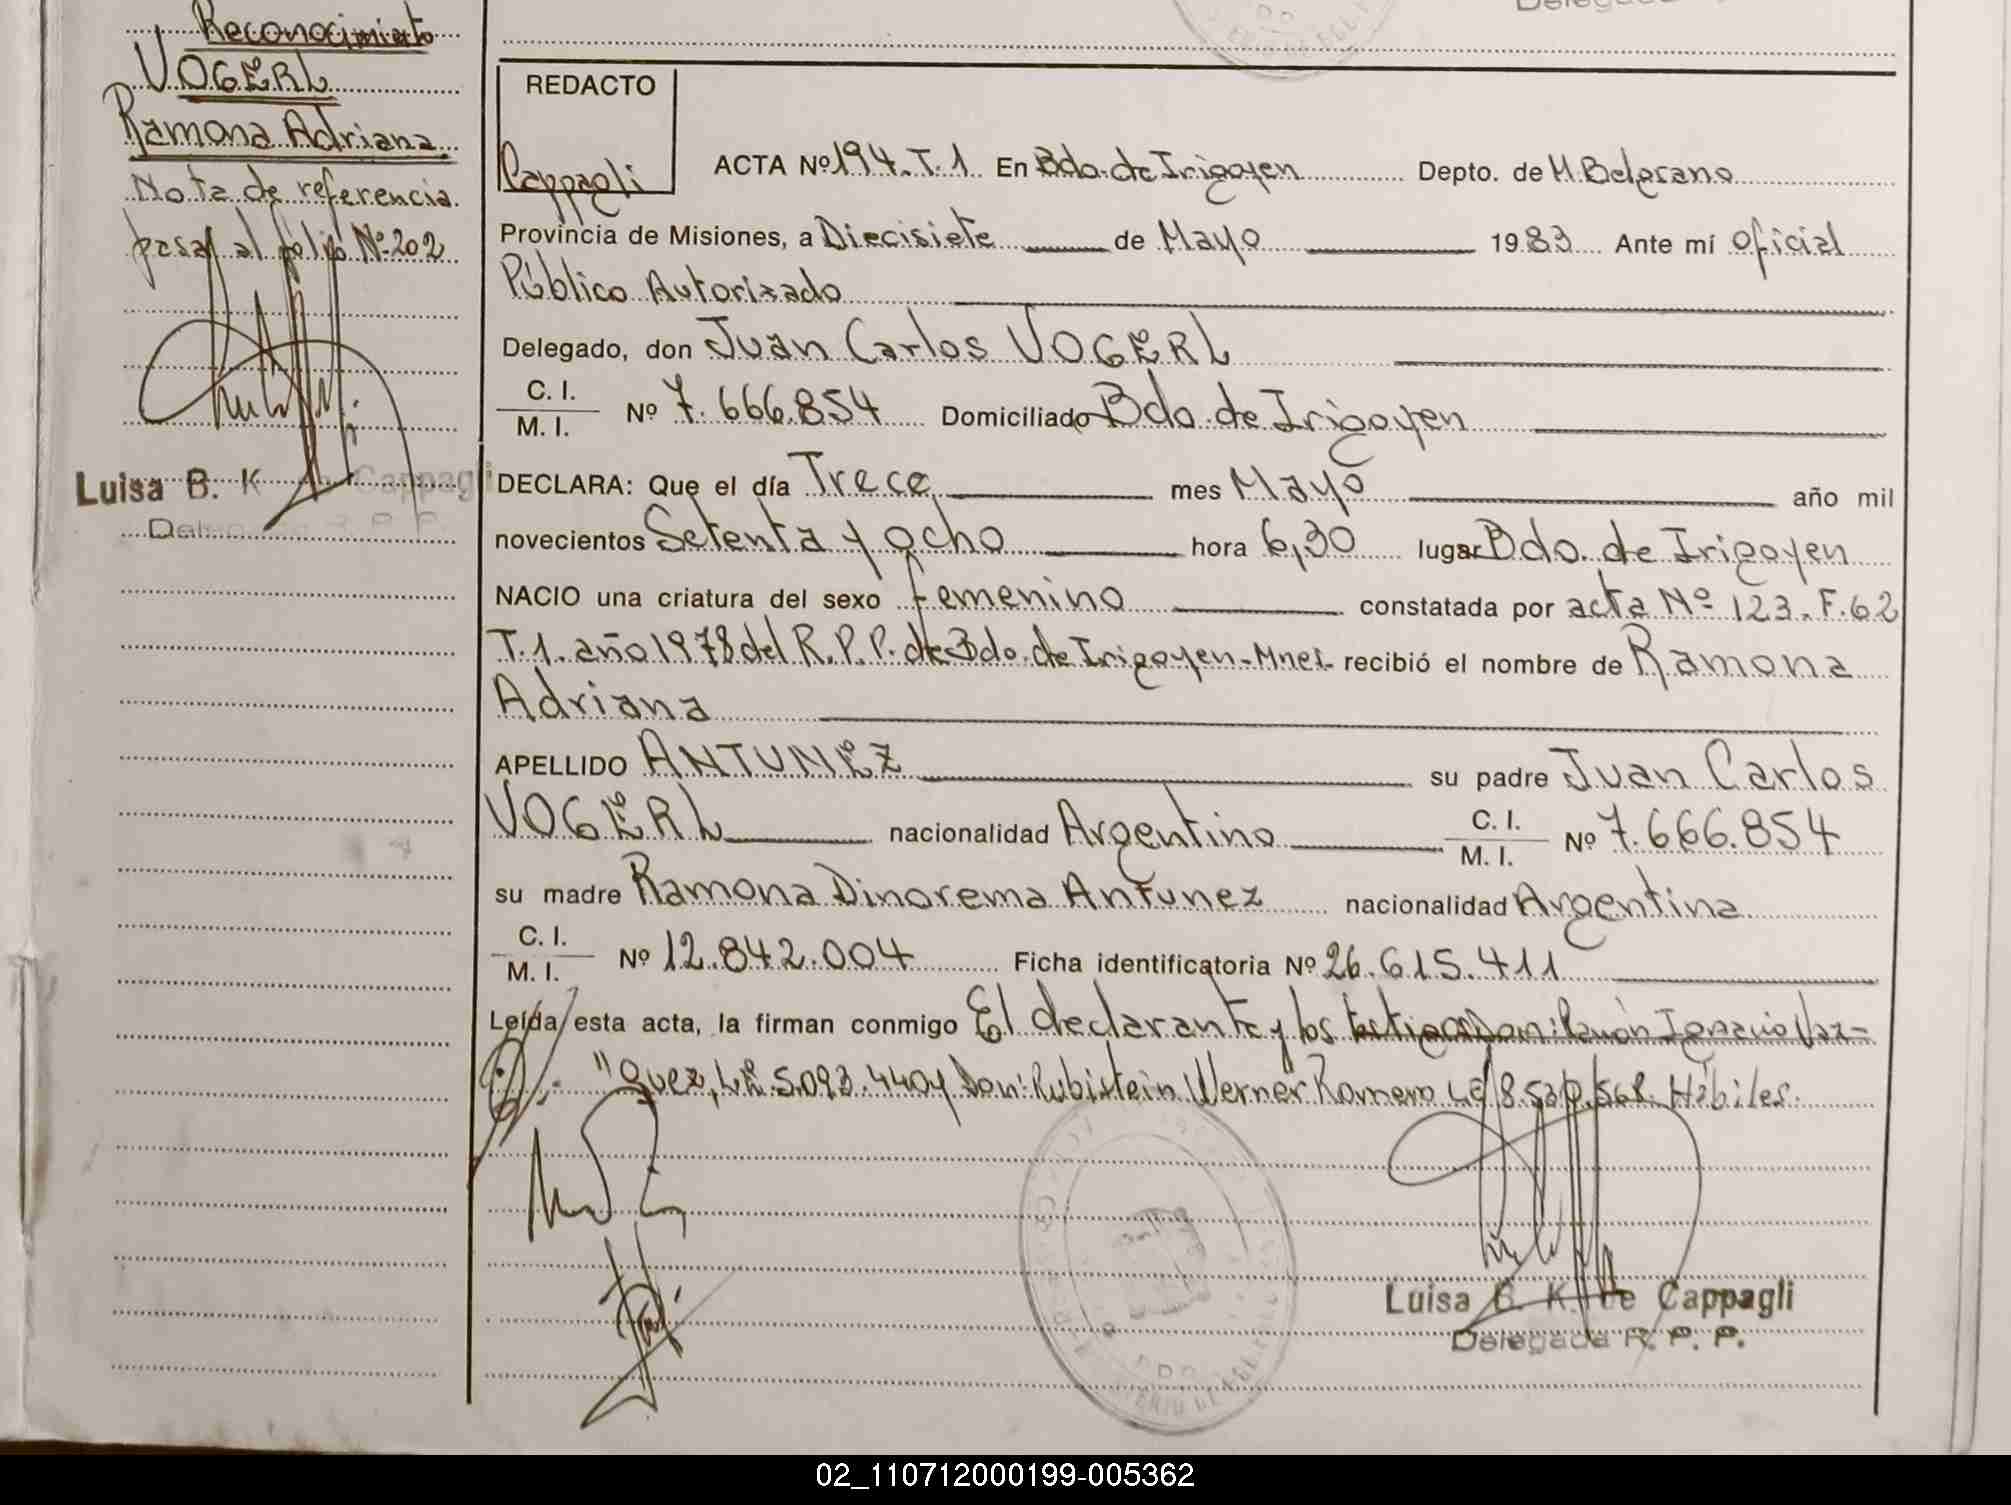 Reconocimiento
VOGERL
Ramona Adriana
Nota de referencia
pasa al folio Nº 202
Luisa B. K Cappagli
REDACTO
Cappagli
ACTA Nº 194. T. 1. En Bdo. de Irigoyen Depto. de M. Belgrano
Provincia de Misiones, a Diecisiete de Mayo 1983 Ante mí oficial
Público Autorizado
Delegado, don Juan Carlos VOGERL
C. I.
M. I. Nº 7.666.854 Domiciliado Bdo. de Irigoyen
DECLARA: Que el día Trece mes Mayo año mil
novecientos Setenta y ocho hora 6,30 lugar Bdo. de Irigoyen
NACIO una criatura del sexo Femenino constatada por acta Nº 123. F. 62
T. 1. año 1978 del R. P. P. de Bdo. de Irigoyen - Mnes. recibió el nombre de Ramona
Adriana
APELLIDO ANTUNEZ su padre Juan Carlos
VOGERL nacionalidad Argentino C. I. M. I. Nº 7.666.854
su madre Ramona Dinorema Antunez nacionalidad Argentina
C. I.
M. I. Nº 12.842.004 Ficha identificatoria Nº 26.615.411
Leída esta acta, la firman conmigo El declarante y los testigos Don: Ramón Ignacio Vaz=
"quez, LE. 5.093.440 y Don: Rubistein Werner Romero Hábiles.
Luisa B. K. de Cappagli
Delegada R. P. P.
02_110712000199-005362